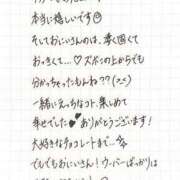 本当に嬉しいです☺
そしておにいさんのは、凄く固くて
おっきくて…♡ズボンの上からでも
分かっちゃったもんね??(ズニ)
一緒にえっちなコト、楽しめて
幸せでした💕ありがとうございます!
大好きなチョコレートまで…
でもでもおにいさん!ウーバーばっかりは